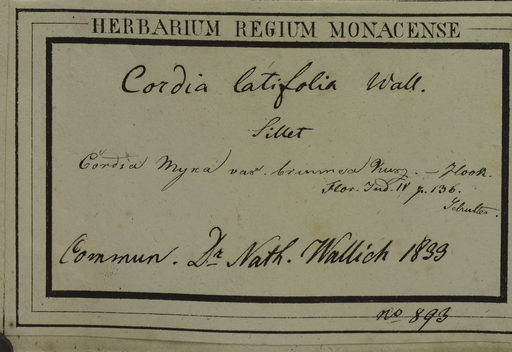 HERBARIUM REGIUM MONACENSE
Cordia latifolia Wall.
Sillet
Cordia Myxa var. brunnea Kurz. — Hook.
Flor. Ind. IV p. 136.
Commun. Dr Nath. Wallich 1833
no 893